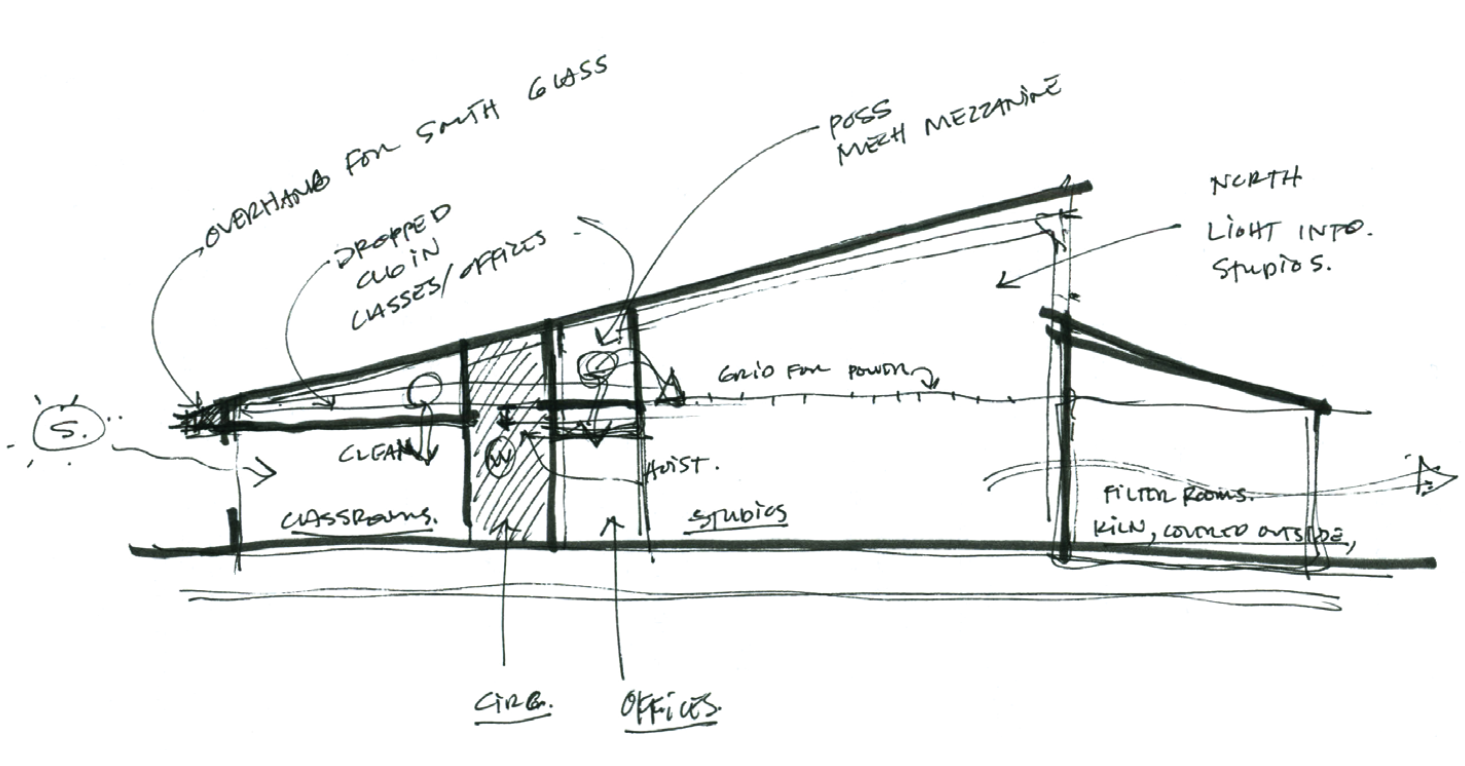 OVERHANG FOR SOUTH GLASS
POSS
MECH MEZZANINE
NORTH
LIGHT INTO.
STUDIOS.
DROPPED
IN
CLASSES/OFFICES
GRID FOR POWER
S.
CLEAN
W
HOIST.
CLASSROOMS.
STUDIOS
FILTER ROOMS.
KILN, COVERED OUTSIDE,
CIRC.
OFFICES.